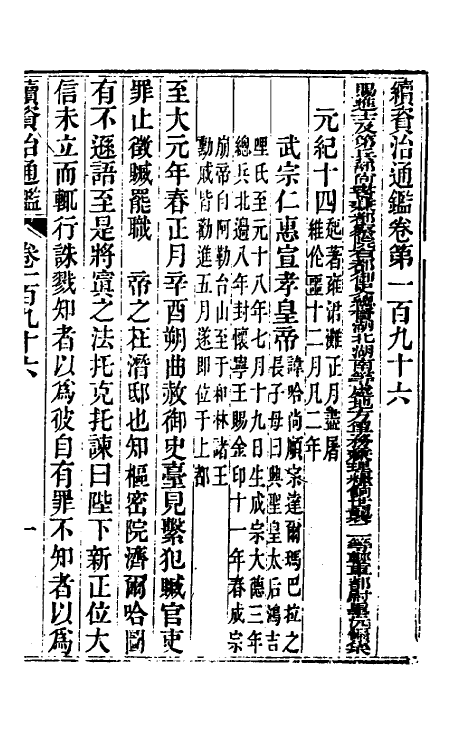 續資治通鑑卷第一百九十六
賜進士及第兵部尚書兼都察院右都御史總督湖北湖南等處地方軍務兼理糧餉世襲二等輕車都尉畢沅編集
元紀十四 起著雍涒灘正月盡屠維作噩十二月凡二年
武宗仁惠宣孝皇帝 諱哈尚順宗達爾瑪巴拉之長子母曰興聖皇太后鴻吉
哩氏至元十八年七月十九日生成宗大德三年
總兵北邊八年封懷寧王賜金印十一年春成宗
崩帝自阿勒台山至于和林諸王
勳戚皆勸進五月遂即位于上都
至大元年春正月辛酉朔曲赦御史臺見繫犯贓官吏
罪止徵贓罷職 帝之在潛邸也知樞密院濟爾哈圖
有不遜語至是將寘之法托克托諫曰陛下新正位大
信未立而輒行誅戮知者以為彼自有罪不知者以為
續資治通鑑 卷一百九十六 一